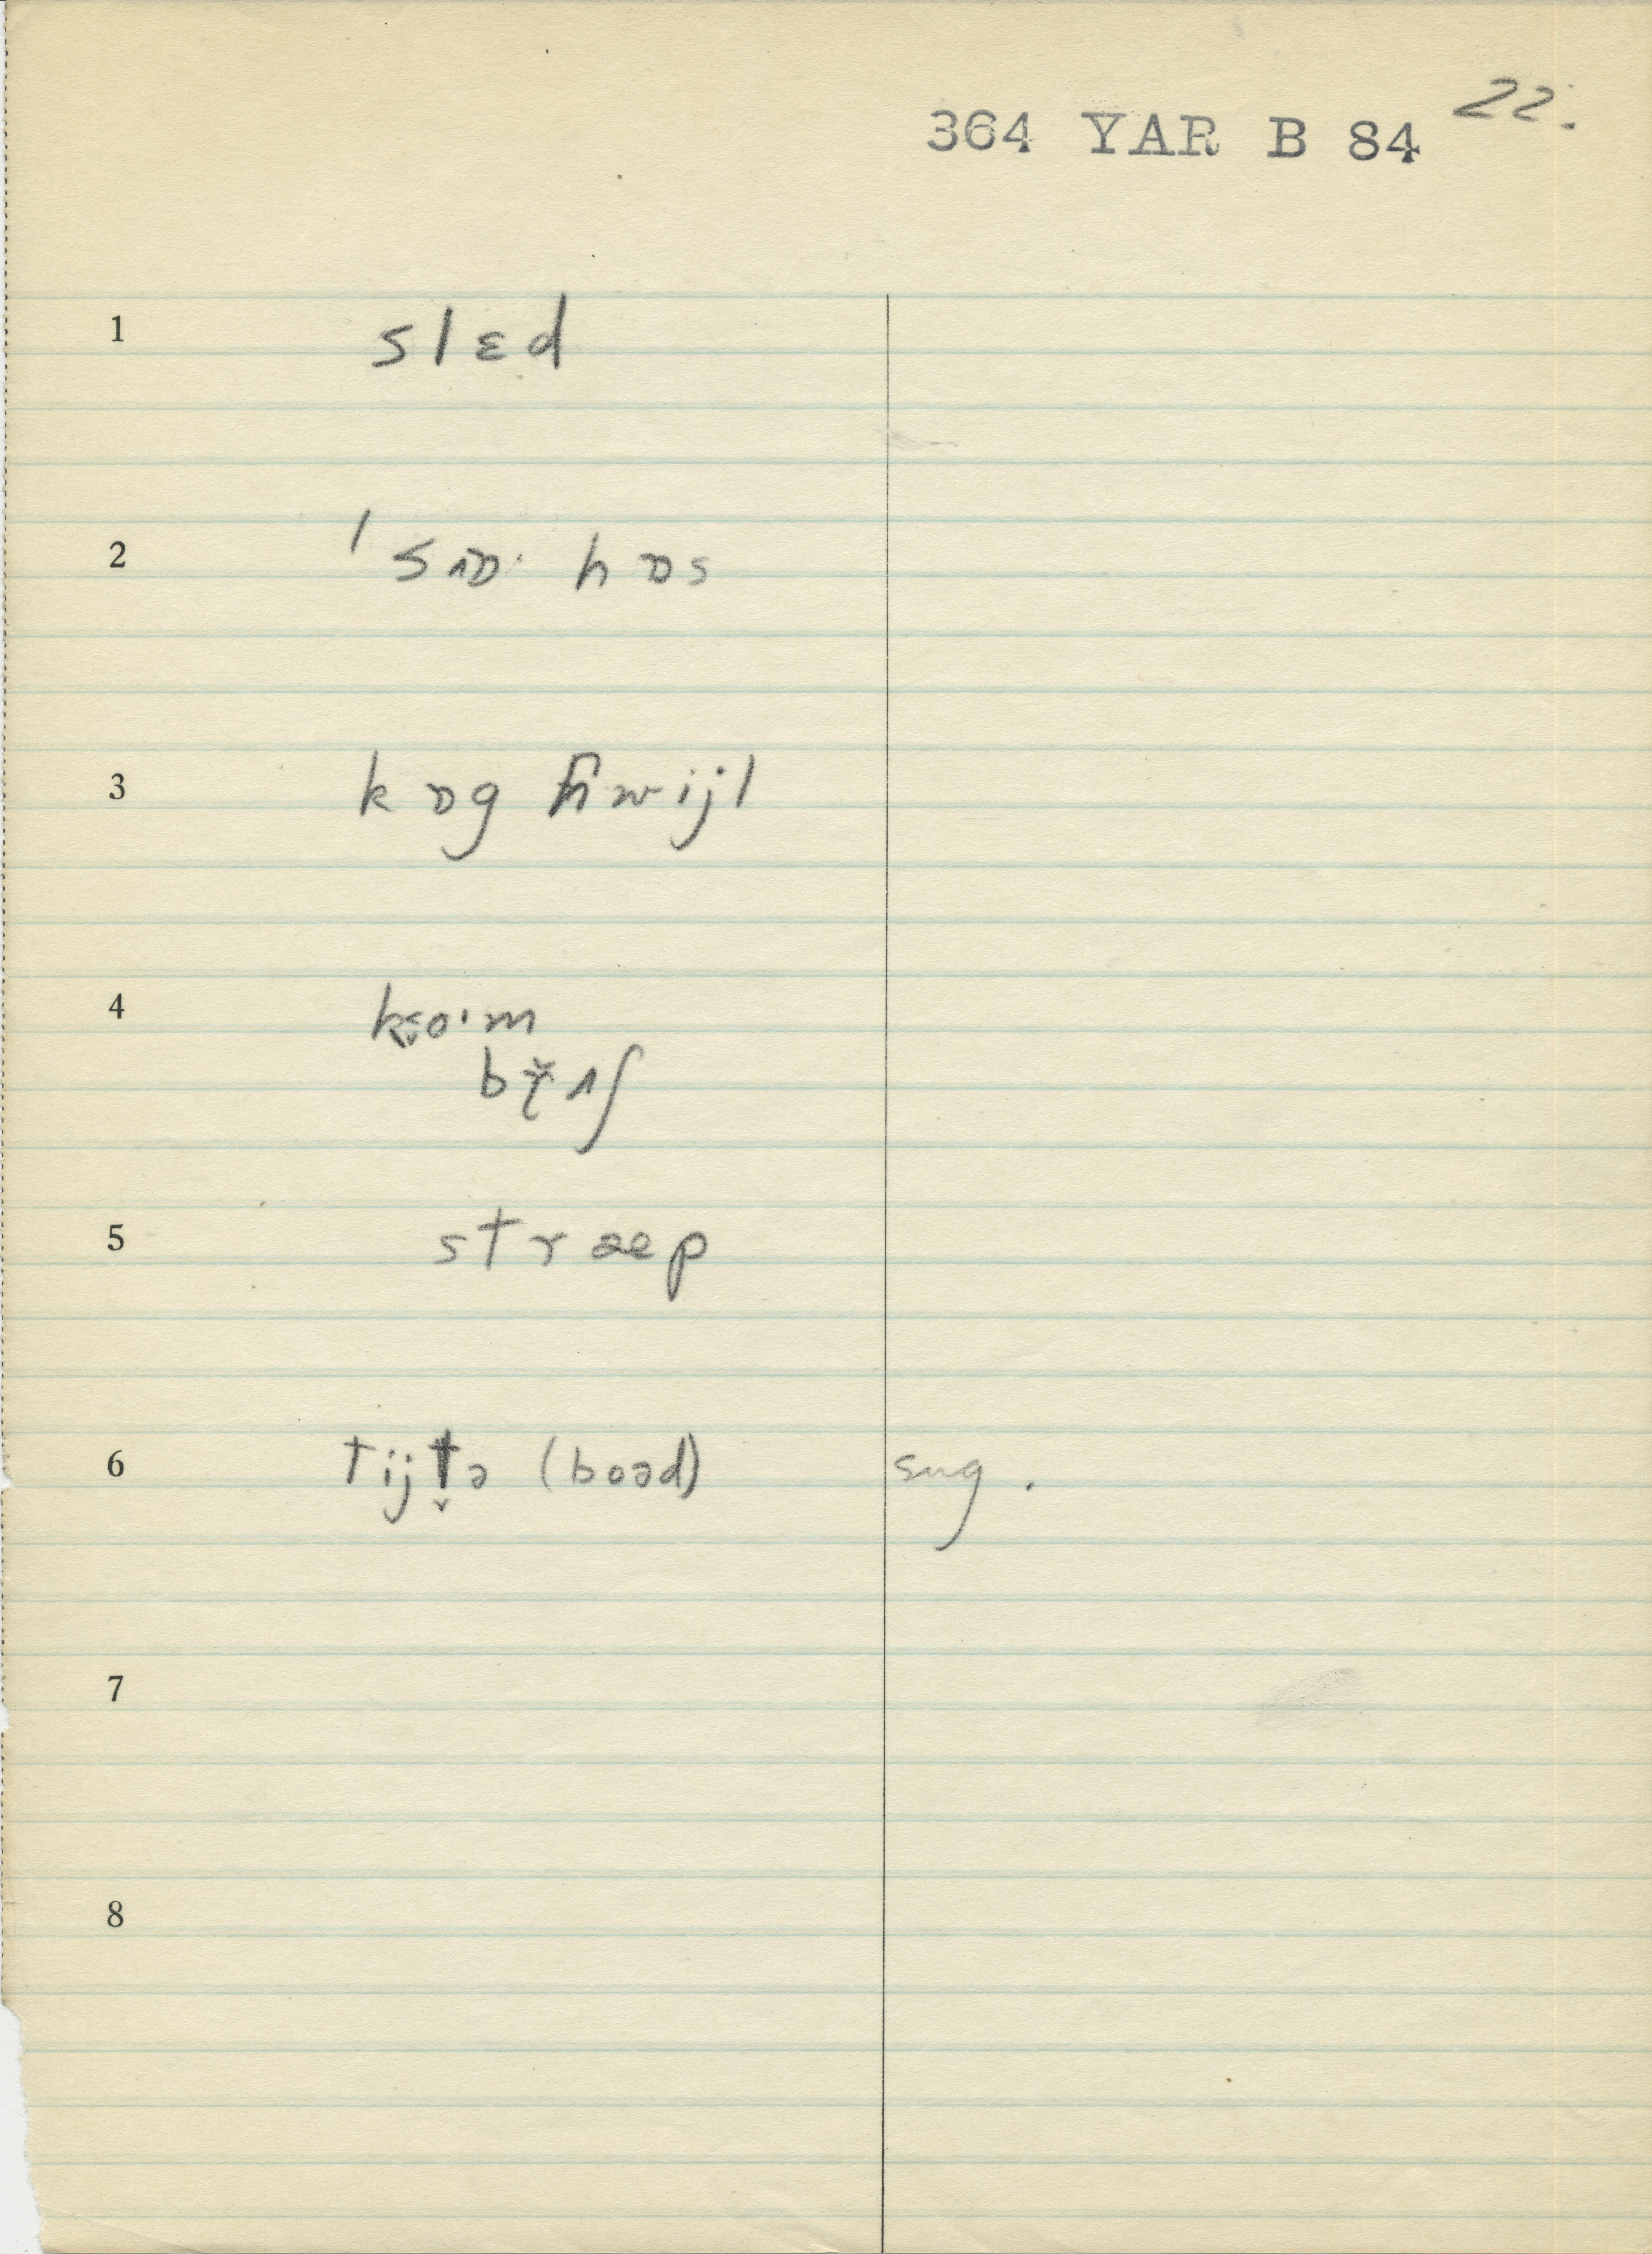 364 YAR B 84 22.
1 slɛd
2 ˈsɒ· hɒs
3 kɒg hwijl
4 ko·m
br̬ʌʃ
5 stræp
6 tijt̬ə (boəd) sug.
7
8